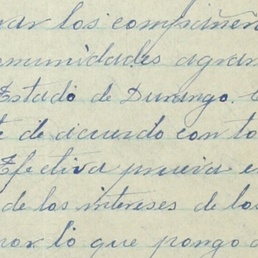 var los compañer
omunidades agrar
Estado de Durango.
te de acuerdo con to
Efectiva prueva e
de los intereses de los
por lo que pongo a